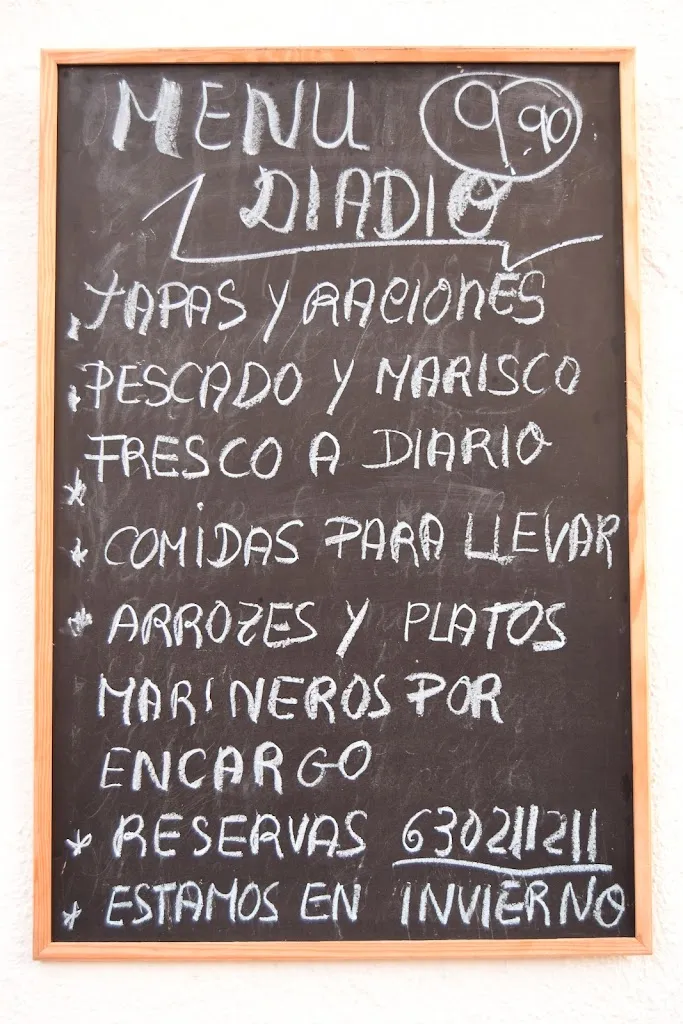 MENU 9,90
DIADIO
TAPAS Y RACIONES
PESCADO Y MARISCO
FRESCO A DIARIO
* COMIDAS PARA LLEVAR
* ARROZES Y PLATOS
MARINEROS POR
ENCARGO
* RESERVAS 630211211
* ESTAMOS EN INVIERNO